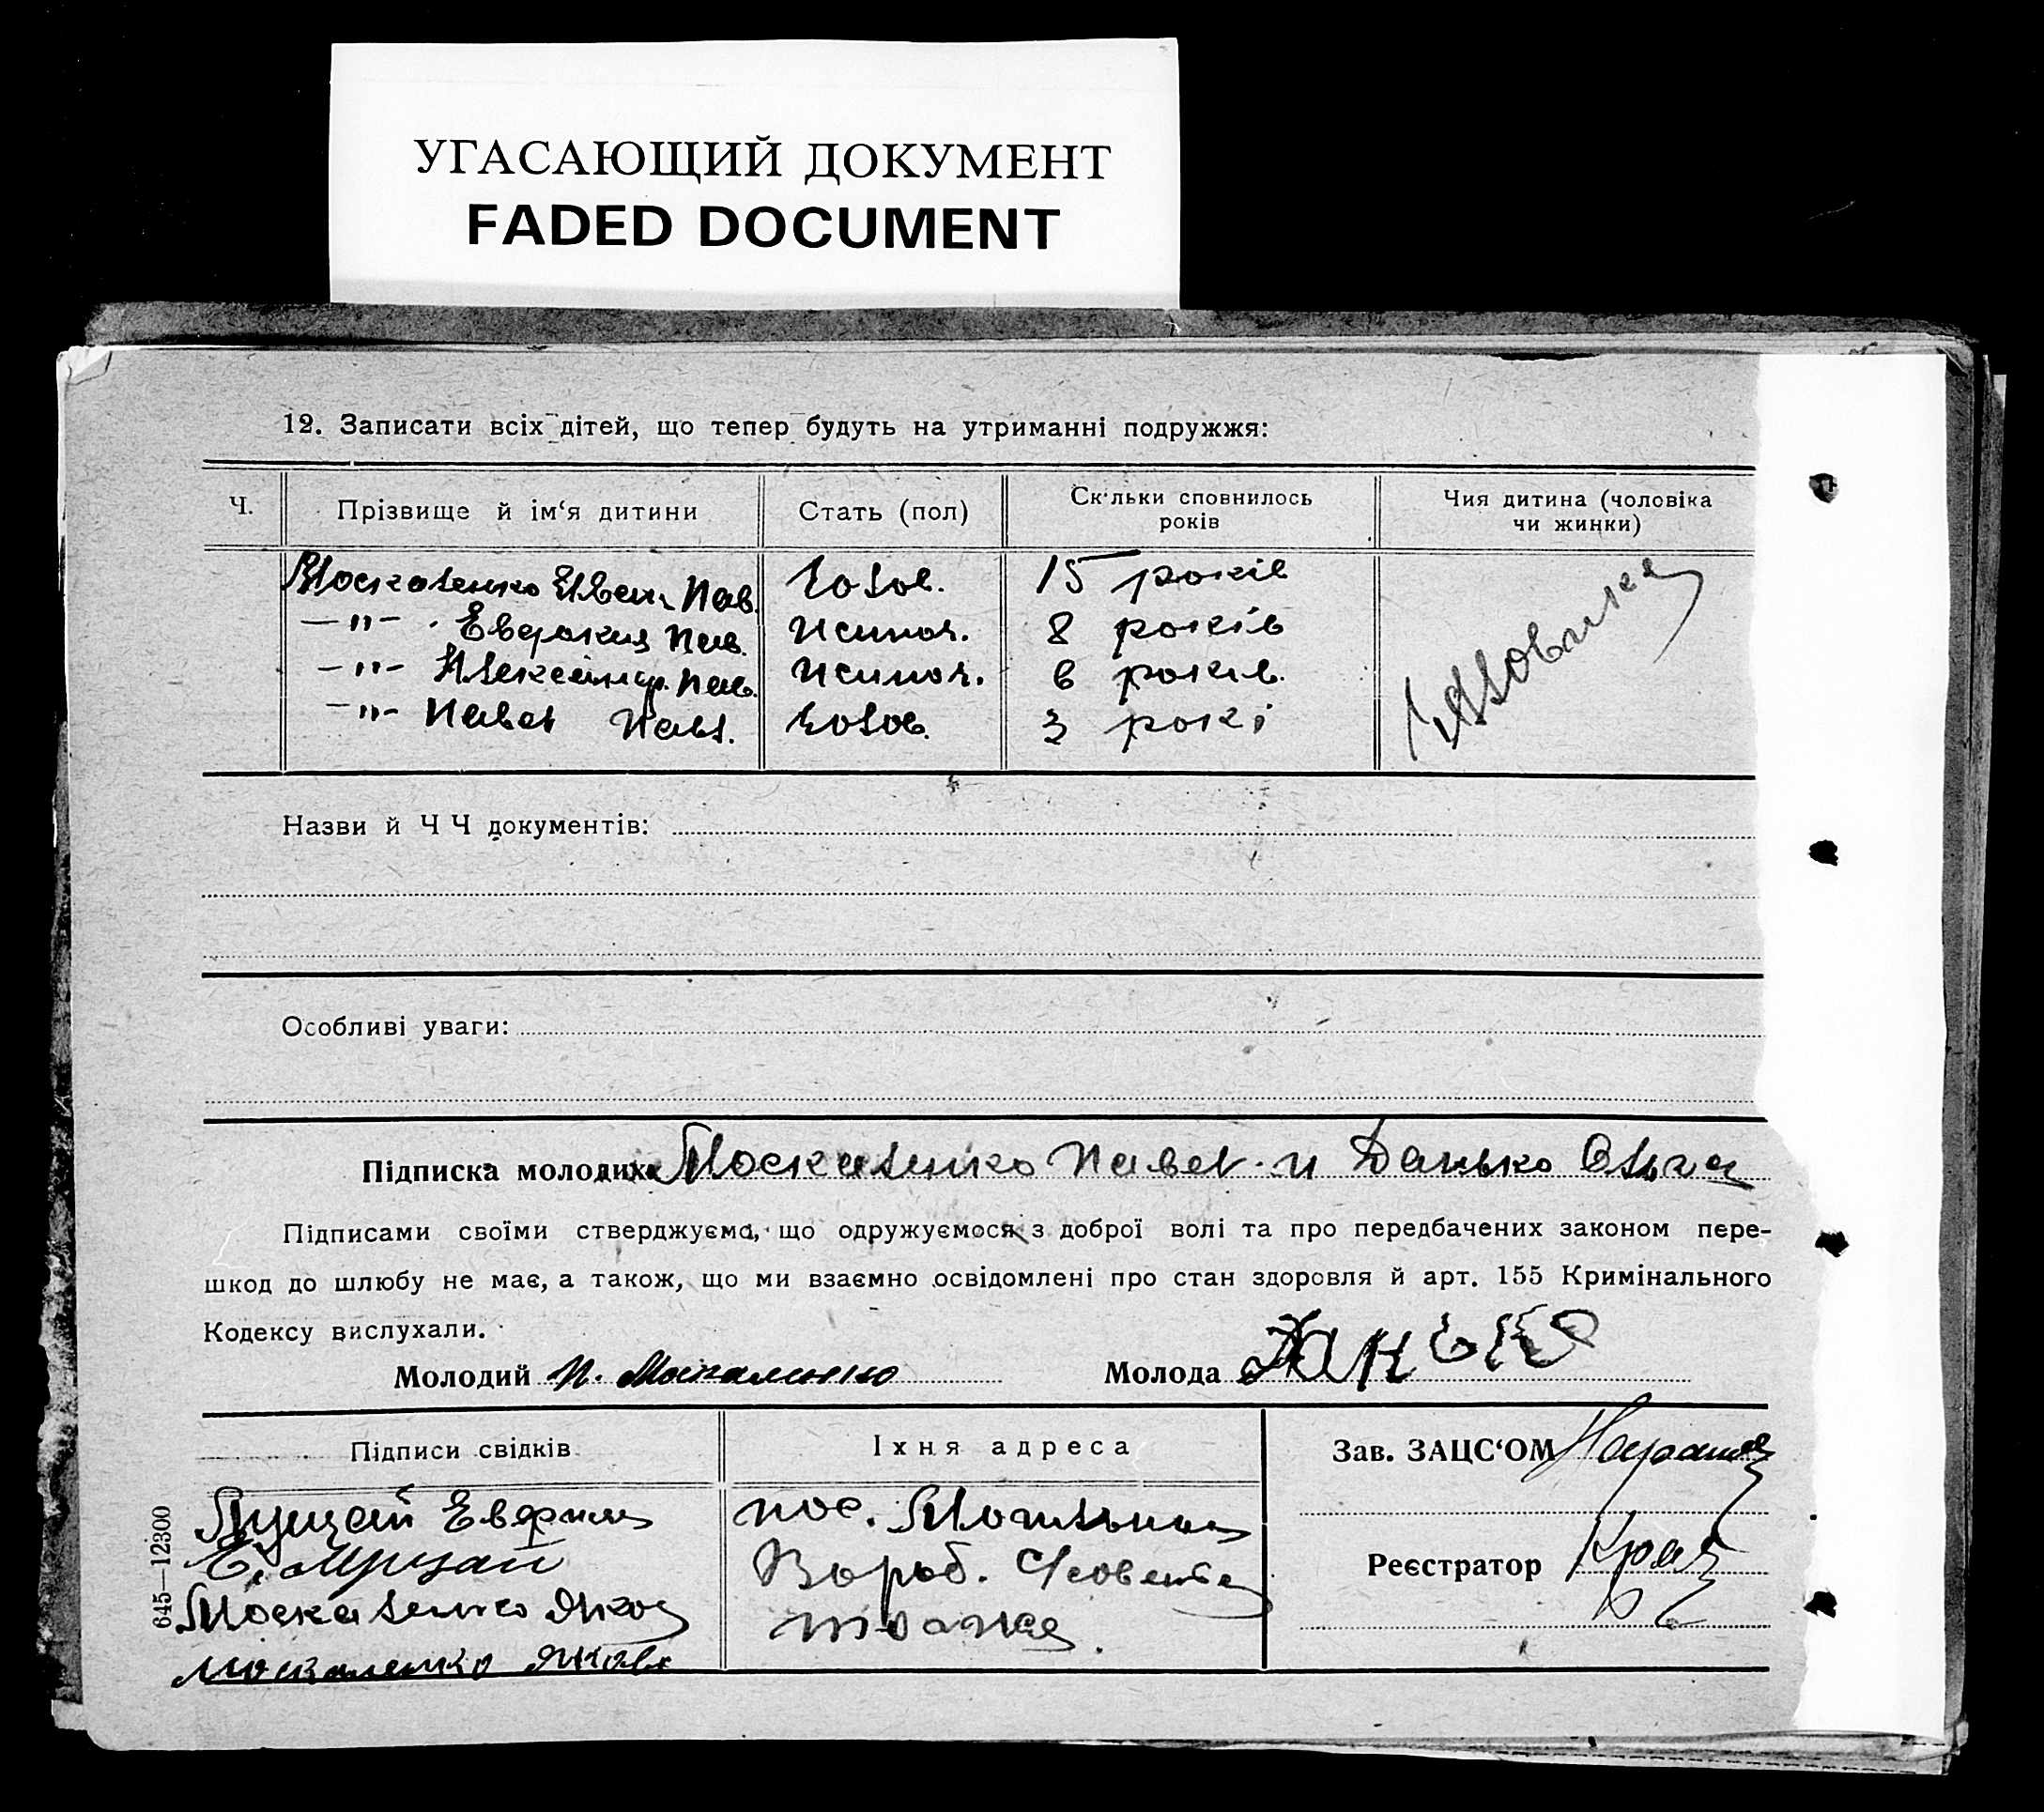 УГАСАЮЩИЙ ДОКУМЕНТ
FADED DOCUMENT
12. Записати всіх дітей, що тепер будуть на утриманні подружжя:
Ч. Прізвище й ім‘я дитини Стать (пол) Скільки сповнилось років Чия дитина (чоловіка чи жинки)
Москаленко Пав. Чолов. 15 років Чоловика
—"— Евдокия Пав. Жиноч. 8 років
—"— Александр. Пав. Жиноч. 6 років.
—"— Павел Павл. Чолов. 3 рокі
Назви й Ч Ч документів:
Особливі уваги:
Підписка молодих Москаленко Павел и Данько Ольга
Підписами своїми стверджуємо, що одружуємося з доброї волі та про передбачених законом пере-
шкод до шлюбу не має, а також, що ми взаємно освідомлені про стан здоровля й арт. 155 Кримінального
Кодексу вислухали.
Молодий П. Москаленко Молода Данько
Підписи свідків Їхня адреса Зав. ЗАЦС‘ОМ
пос.
Москаленко Яков тоже.
Москаленко Яков
Реєстратор
645—12300